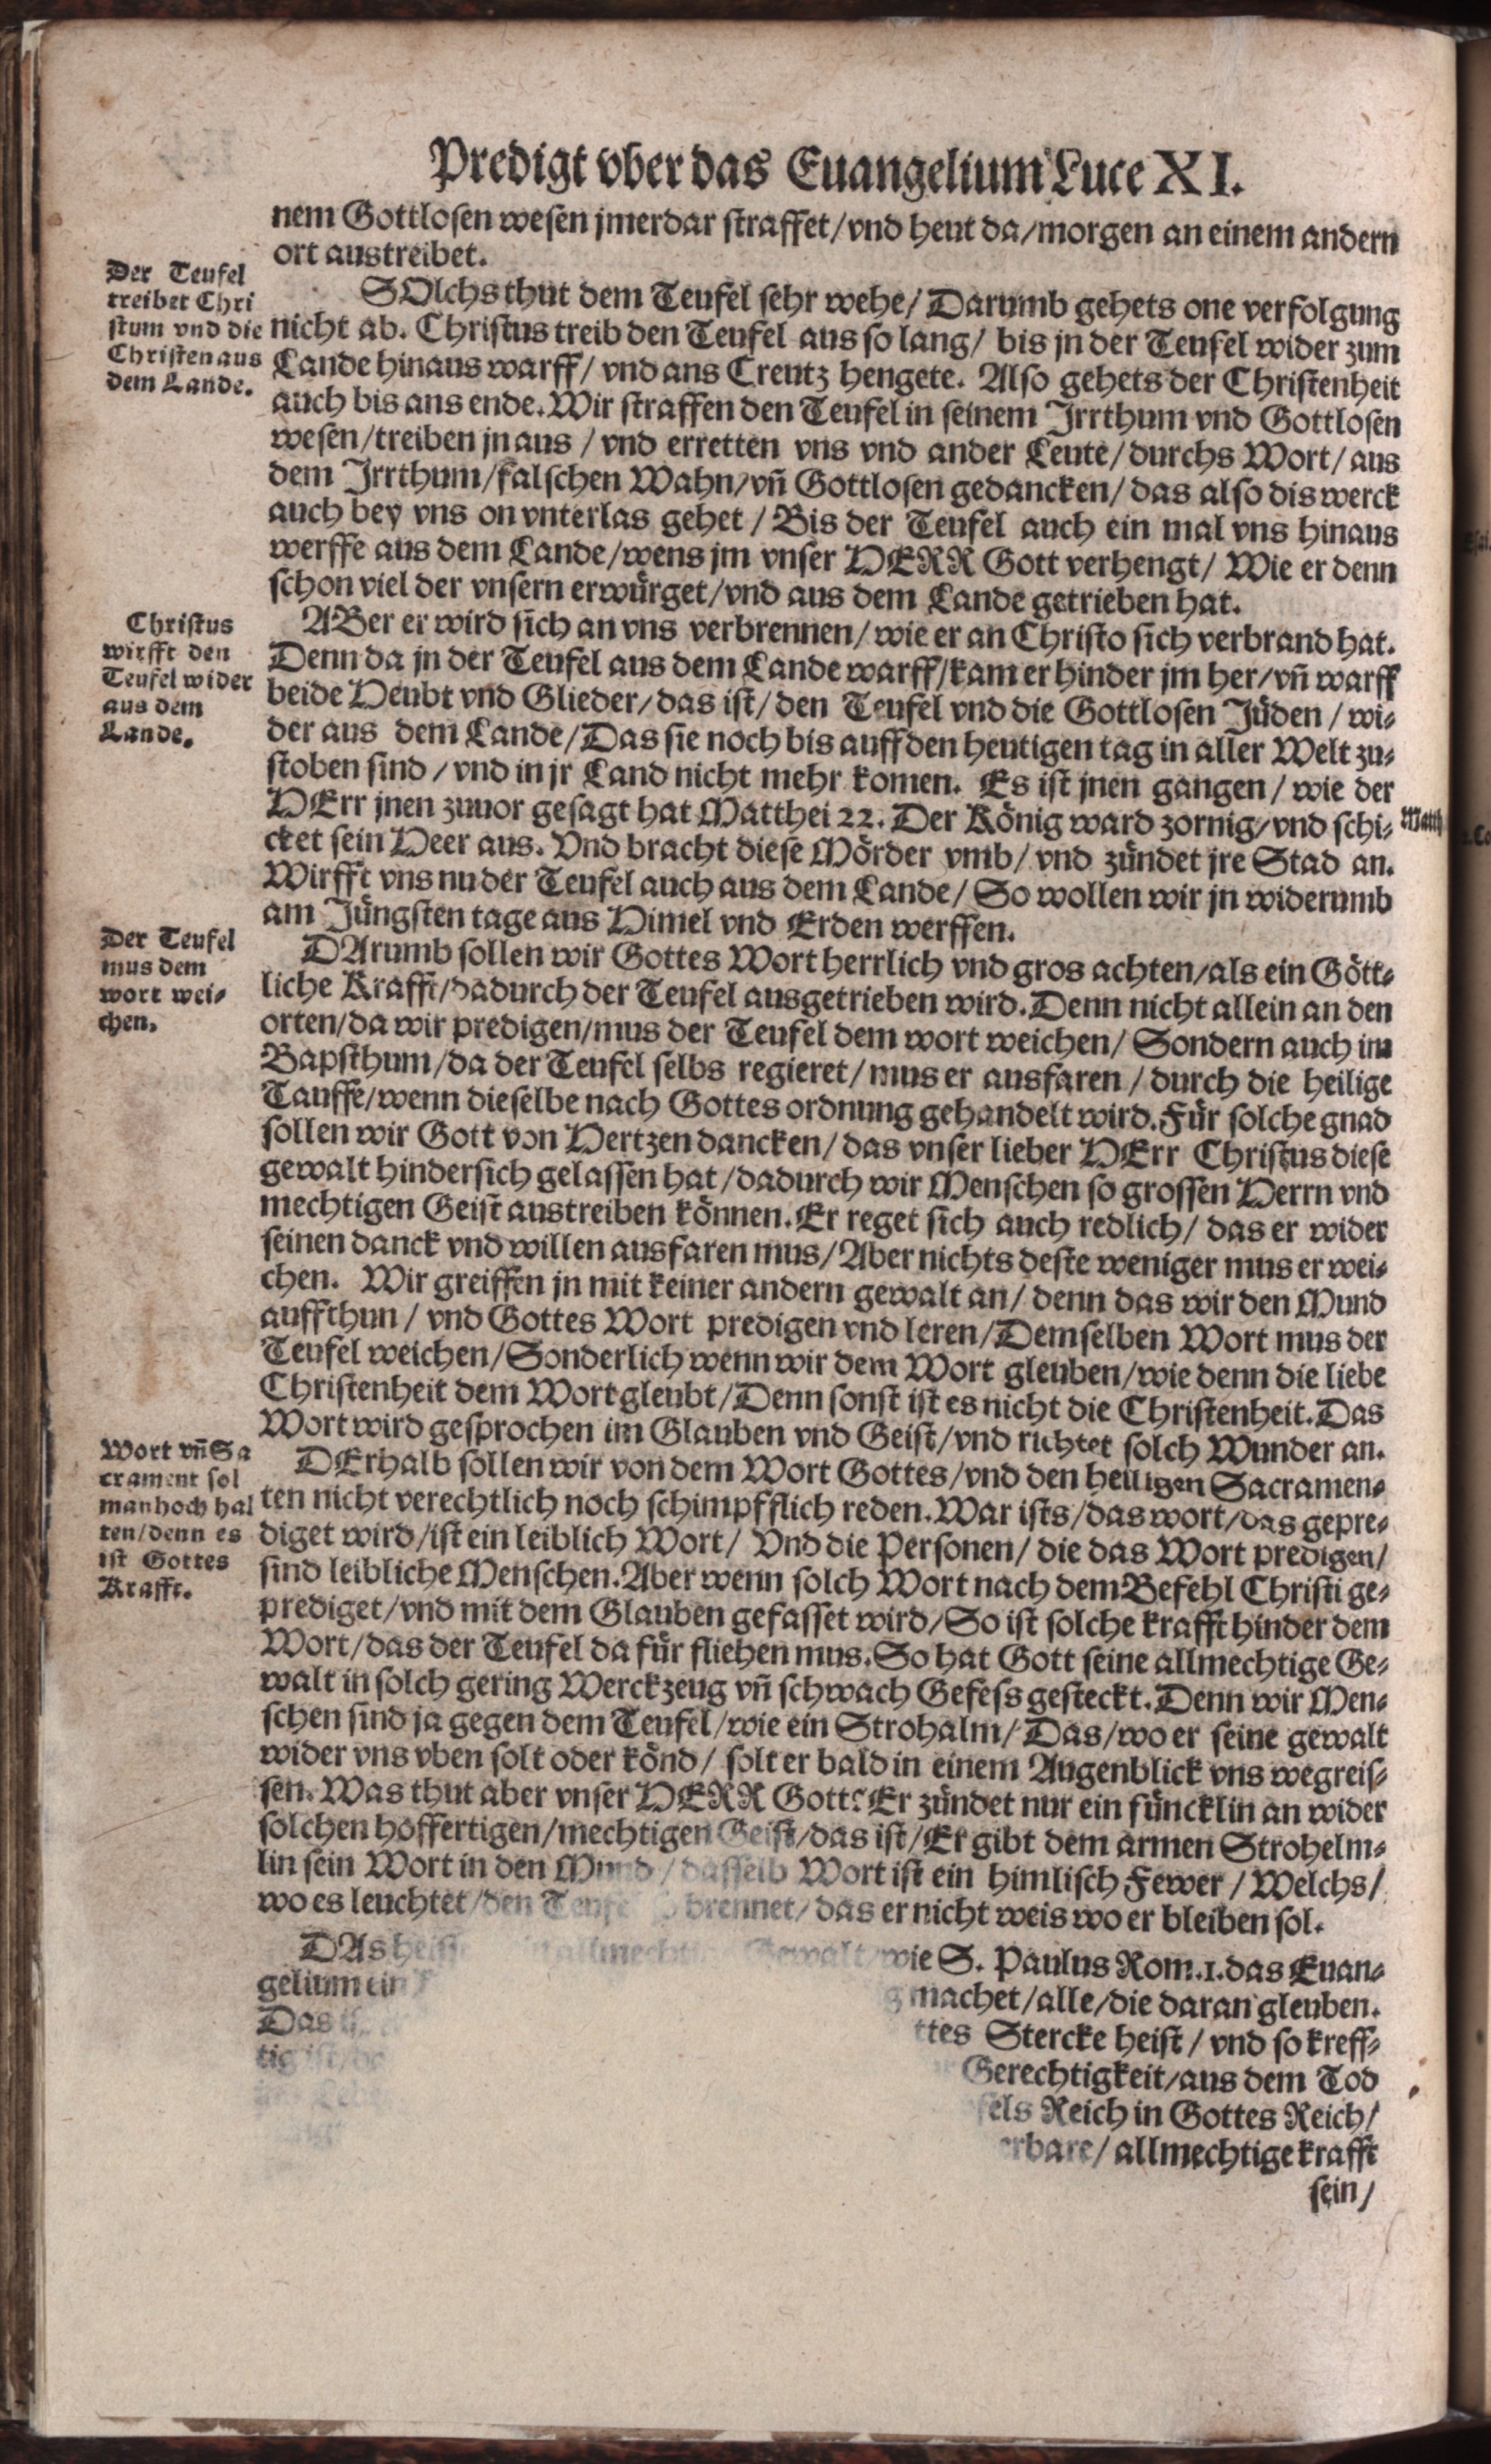 Predigt vber das Euangelium Luce XI.
nem Gottlosen wesen jmerdar straffet/vnd heut da/morgen an einem andern
ort austreibet.
Der Teufel
treibet Chri
stum vnd die
Christen aus
dem Lande.
SOlchs thut dem Teufel sehr wehe/Darumb gehets one verfolgung
nicht ab. Christus treib den Teufel aus so lang/ bis jn der Teufel wider zum
Lande hinaus warff/ vnd ans Creutz hengete. Also gehets der Christenheit
auch bis ans ende. Wir straffen den Teufel in seinem Jrrthum vnd Gottlosen
wesen/treiben jn aus / vnd erretten vns vnd ander Leute/durchs Wort/aus
dem Jrrthum/falschen Wahn/vñ Gottlosen gedancken/das also dis werck
auch bey vns on vnterlas gehet / Bis der Teufel auch ein mal vns hinaus
werffe aus dem Lande/wens jm vnser HERR Gott verhengt/ Wie er denn
schon viel der vnsern erwürget/vnd aus dem Lande getrieben hat.
Christus
wirfft den
Teufel wider
aus dem
Lande.
ABer er wird sich an vns verbrennen/wie er an Christo sich verbrand hat.
Denn da jn der Teufel aus dem Lande warff/kam er hinder jm her/vñ warff
beide Heubt vnd Glieder/das ist/den Teufel vnd die Gottlosen Jüden / wi-
der aus dem Lande/Das sie noch bis auff den heutigen tag in aller Welt zu-
stoben sind / vnd in jr Land nicht mehr komen. Es ist jnen gangen / wie der
HErr jnen zuuor gesagt hat Matthei 22. Der König ward zornig/vnd schi-
Matth
cket sein Heer aus. Vnd bracht diese Mörder vmb/ vnd zündet jre Stad an.
Wirfft vns nu der Teufel auch aus dem Lande/ So wollen wir jn widerumb
am Jüngsten tage aus Himel vnd Erden werffen.
Der Teufel
mus dem
wort wei-
chen.
DArumb sollen wir Gottes Wort herrlich vnd gros achten/als ein Gött-
liche Krafft/dadurch der Teufel ausgetrieben wird. Denn nicht allein an den
orten/da wir predigen/mus der Teufel dem wort weichen/ Sondern auch im
Bapsthum/da der Teufel selbs regieret/mus er ausfaren / durch die heilige
Tauffe/wenn dieselbe nach Gottes ordnung gehandelt wird. Für solche gnad
sollen wir Gott von Hertzen dancken/das vnser lieber HErr Christus diese
gewalt hindersich gelassen hat/dadurch wir Menschen so grossen Herrn vnd
mechtigen Geist austreiben können. Er reget sich auch redlich/ das er wider
seinen danck vnd willen ausfaren mus/Aber nichts deste weniger mus er wei-
chen. Wir greiffen jn mit keiner andern gewalt an/ denn das wir den Mund
auffthun/ vnd Gottes Wort predigen vnd leren/Demselben Wort mus der
Teufel weichen/Sonderlich wenn wir dem Wort gleuben/wie denn die liebe
Christenheit dem Wort gleubt/Denn sonst ist es nicht die Christenheit. Das
Wort wird gesprochen im Glauben vnd Geist/vnd richtet solch Wunder an.
Wort vñ Sa
crament sol
man hoch hal
ten/denn es
ist Gottes
Krafft.
DErhalb sollen wir von dem Wort Gottes/vnd den heiligen Sacramen-
ten nicht verechtlich noch schimpfflich reden. War ists/das wort/das gepre-
diget wird/ist ein leiblich Wort/ Vnd die Personen/ die das Wort predigen/
sind leibliche Menschen. Aber wenn solch Wort nach dem Befehl Christi ge-
prediget/vnd mit dem Glauben gefasset wird/So ist solche krafft hinder dem
Wort/das der Teufel da für fliehen mus. So hat Gott seine allmechtige Ge-
walt in solch gering Werckzeug vñ schwach Gefess gesteckt. Denn wir Men-
schen sind ja gegen dem Teufel/wie ein Strohalm/Das/wo er seine gewalt
wider vns vben solt oder könd/ solt er bald in einem Augenblick vns wegreis-
sen. Was thut aber vnser HERR Gott? Er zündet nur ein füncklin an wider
solchen hoffertigen/mechtigen Geist/das ist/Er gibt dem armen Strohelm-
lin sein Wort in den Mund / dasselb Wort ist ein himlisch Fewer / Welchs/
wo es leuchtet/den Teufel so brennet/das er nicht weis wo er bleiben sol.
DAs heisst allmechtige Gewalt/wie S. Paulus Rom. 1. das Euan-
gelium ein machet/alle/die daran gleuben.
Das ttes Stercke heist/ vnd so kreff-
tig ist/ Gerechtigkeit/aus dem Tod
fels Reich in Gottes Reich/
erbare/ allmechtige krafft
sein/